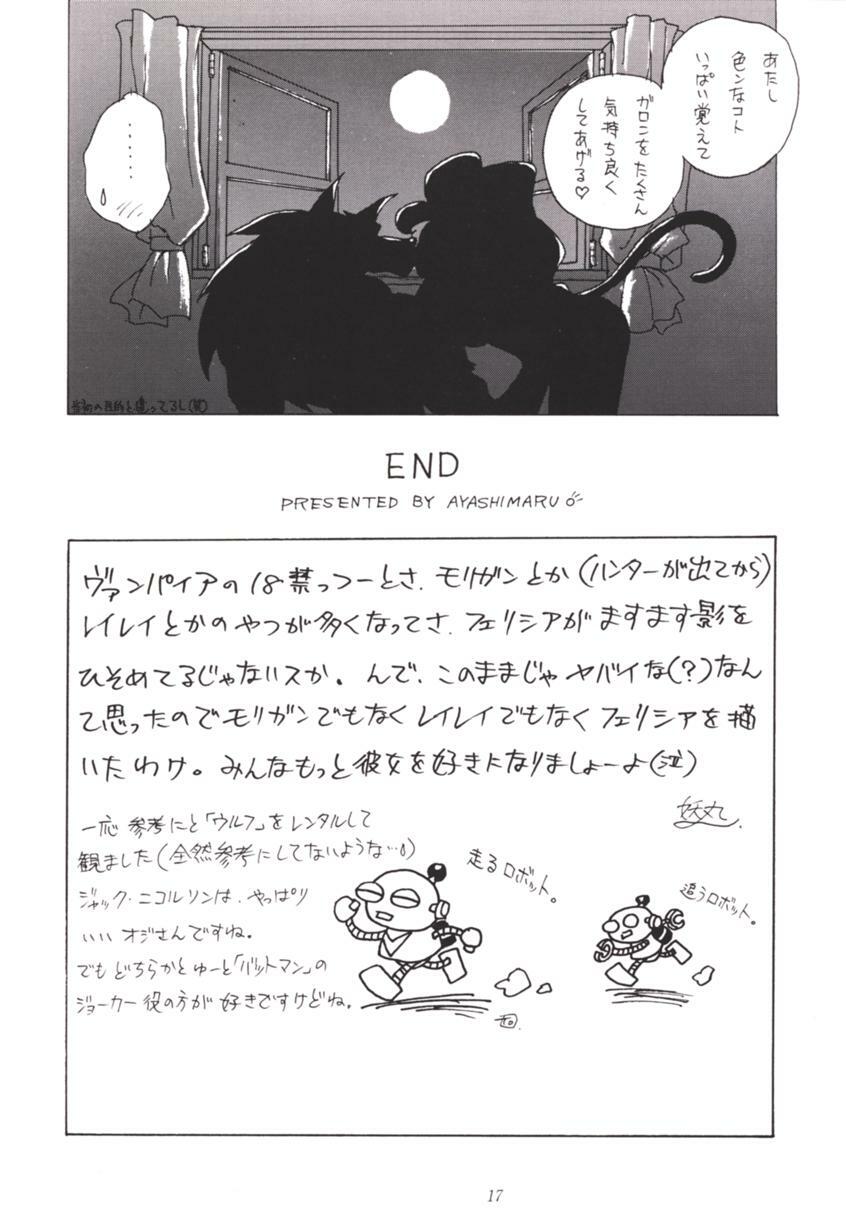 あたし
色ンなコト
いっぱい覚えて
ガロンをたくさん
気持ち良く
してあげる♡
……
当初の目的と違ってるし(笑)
END
PRESENTED BY AYASHIMARU
ヴァンパイアの18禁っつーとさ、モリガンとか(ハンターが出てから)
レイレイとかのやつが多くなってさ、フェリシアがますます影を
ひそめてるじゃないスか。んで、このままじゃヤバイな(?)なん
て思ったのでモリガンでもなくレイレイでもなくフェリシアを描
いたわけ。みんなもっと彼女を好きになりましょーよ(泣)
妖丸.
一応参考にと「ウルフ」をレンタルして
観ました(全然参考にしてないような…)
ジャック・ニコルソンは、やっぱり
いいオジさんですね。
でもどちらかとゆーと「バットマン」の
ジョーカー役の方が好きですけどね。
走るロボット。
追うロボット。
17